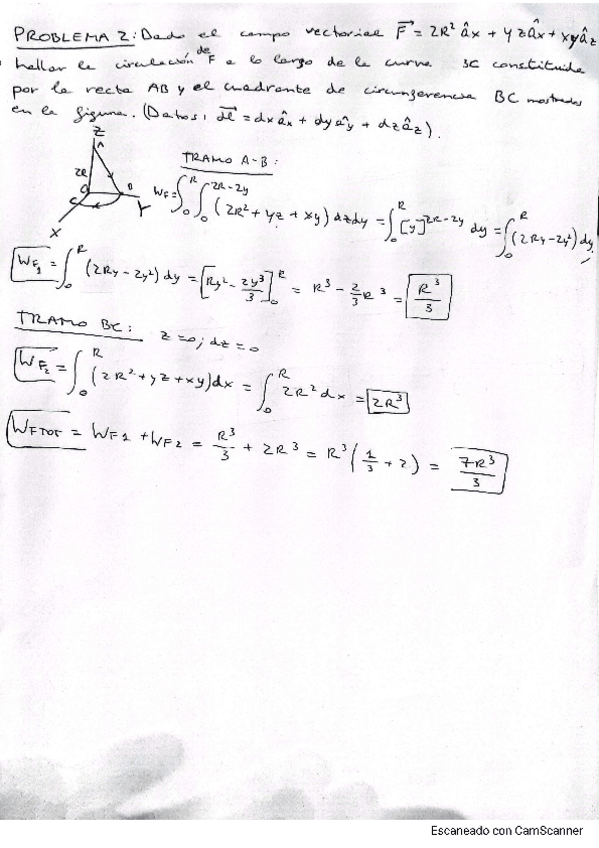 PROBLEMA 2: Dado el campo vectorial F⃗ = 2R² âx + yzâx + xyâz
hallar la circulación de F a lo largo de la curva SC constituida
por la recta AB y el cuadrante de circunferencia BC mostrados
en la figura. (Datos: dl⃗ = dxâx + dyây + dzâz).
Z
A
2R
O
B
C
Y
X
TRAMO A-B:
WF = ∫₀^R ∫₀^(2R-2y) (2R² + yz + xy) dzdy = ∫₀^R [y]^(2R-2y) dy = ∫₀^R (2Ry - 2y²) dy
WF₁ = ∫₀^R (2Ry - 2y²) dy = [Ry² - 2y³/3]₀^R = R³ - 2/3 R³ = R³/3
TRAMO BC: z=0; dz=0
WF₂ = ∫₀^R (2R² + yz + xy) dx = ∫₀^R 2R² dx = 2R³
WFTOT = WF1 + WF2 = R³/3 + 2R³ = R³ (1/3 + 2) = 7R³/3
Escaneado con CamScanner